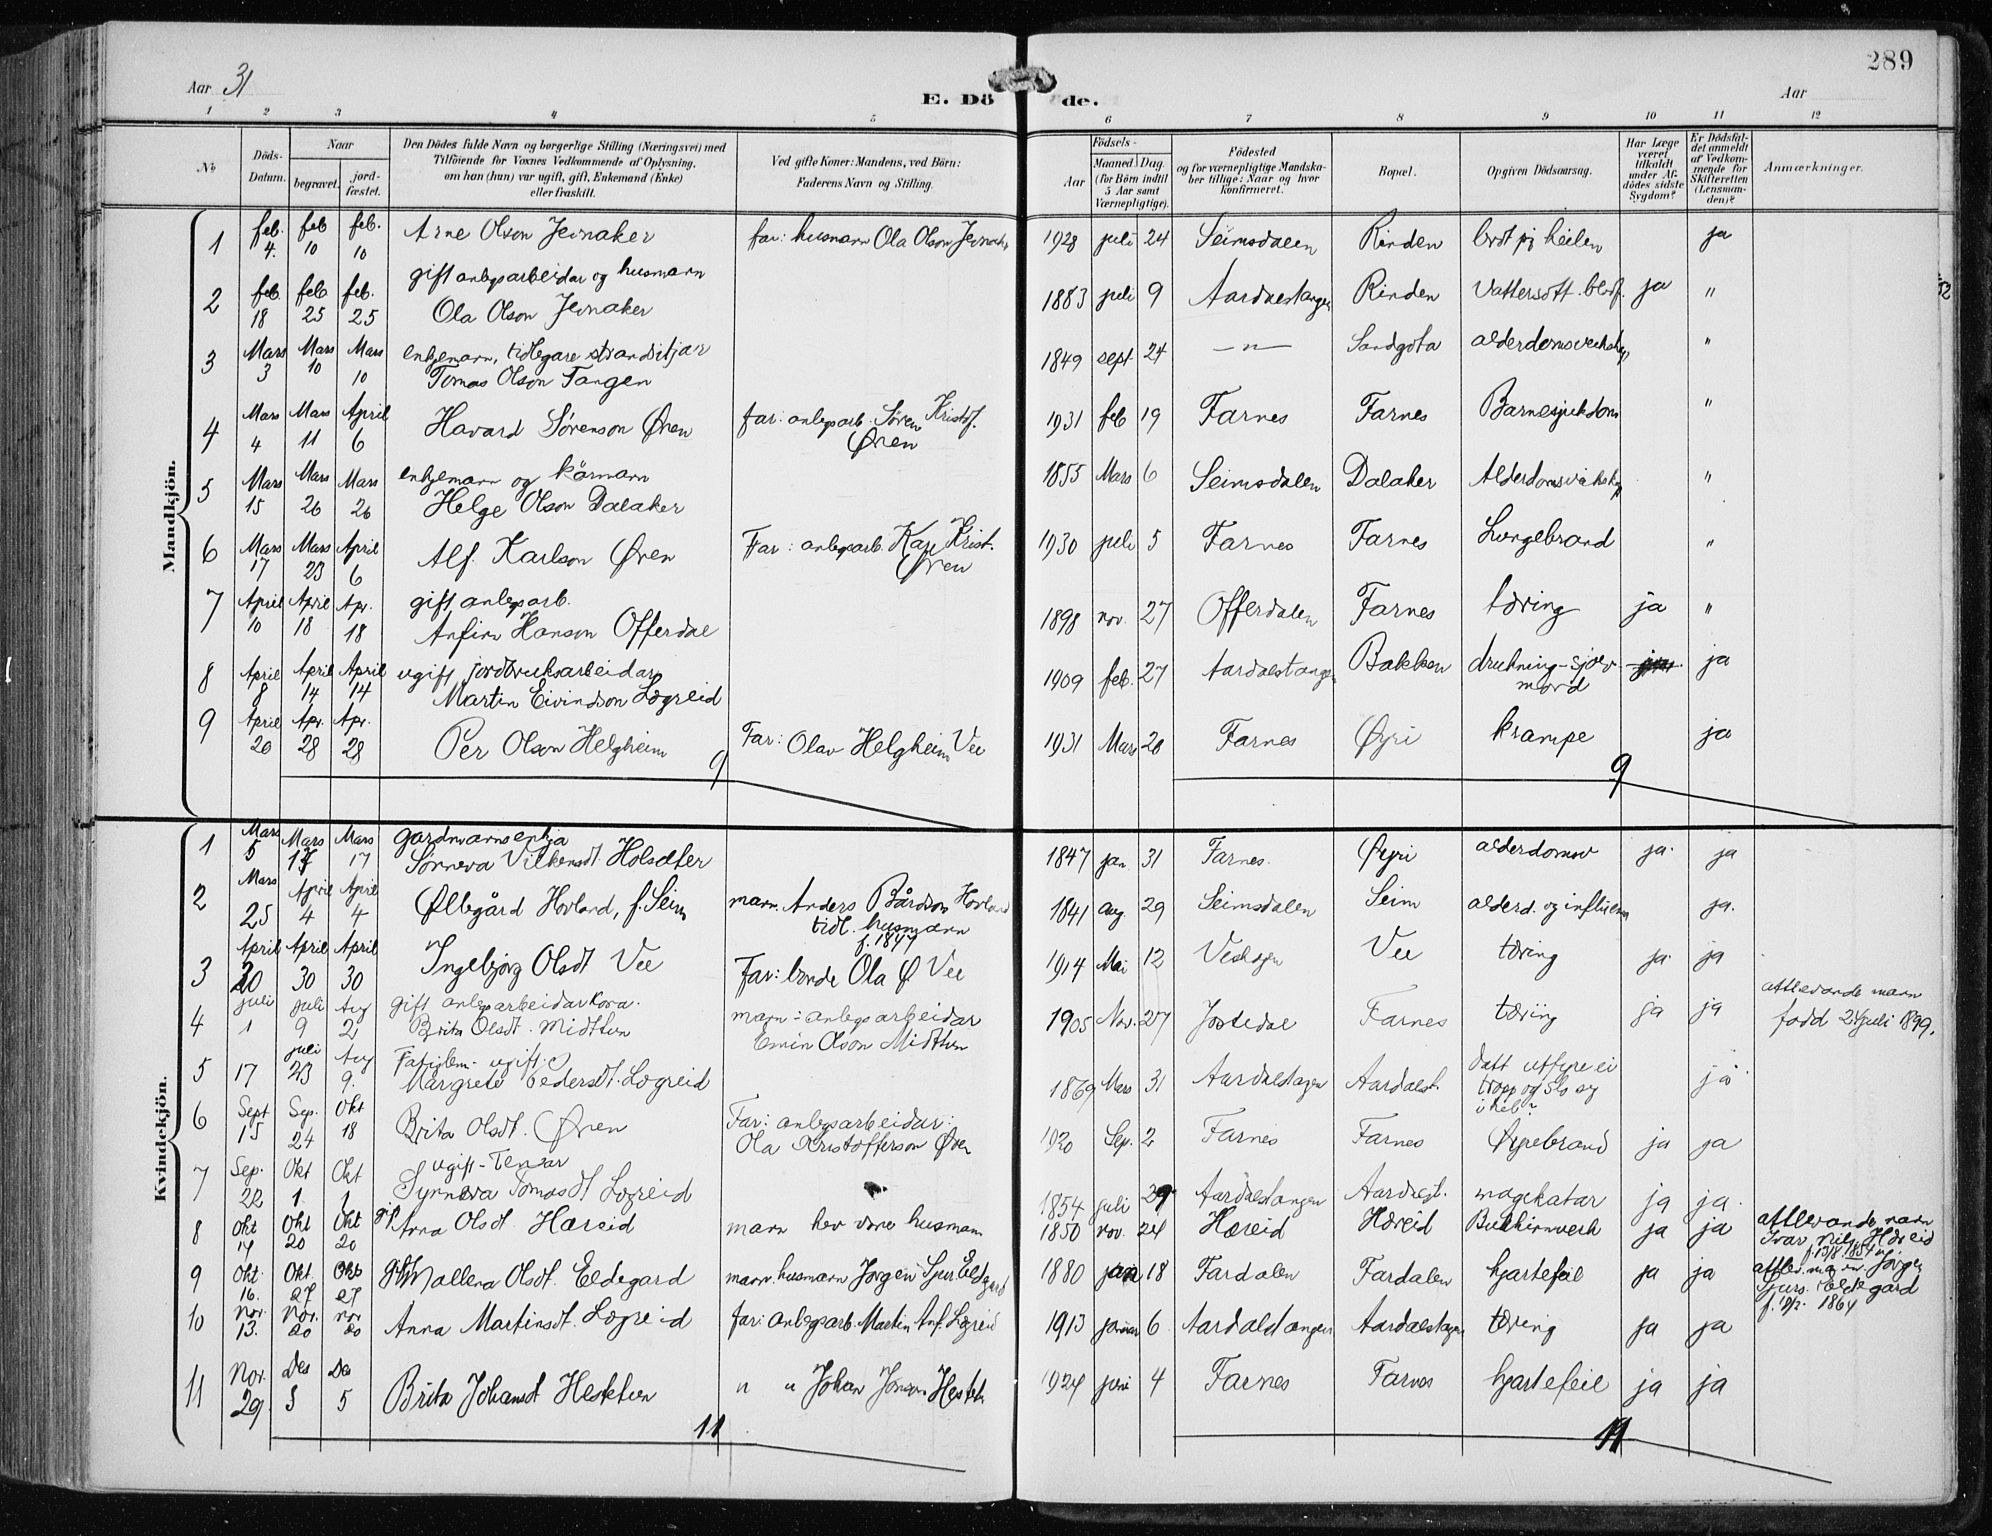 289
Aar 31
E. Döde.
Aar
1 2 3 4 5 6 7 8 9 10 11 12
No
Döds-Datum.
Naar
begravet.
jord-fæstet.
Den Dödes fulde Navn og borgerlige Stilling (Næringsvei) med
Tilföiende for Voxnes Vedkommende af Oplysning,
om han (hun) var ugift, gift, Enkemand (Enke)
eller fraskilt.
Ved gifte Koner: Mandens, ved Börn:
Faderens Navn og Stilling.
Födsels-
Aar
Maaned. Dag.
(for Börn indtil
5 Aar samt
Værnepligtige).
Födested
og for værnepligtige Mandska-
ber tillige: Naar og hvor
konfirmeret.
Bopæl.
Opgiven Dödsaarsag.
Har Læge
været
tilkaldt
under Af-
dödes sidste
Sygdom?
Er Dödsfal-
det anmeldt
af Vedkom-
mende for
Skifteretten
(Lensman-
den)?
Anmærkninger.
Mandkjön.
1 feb. 4. feb 10 feb. 10 Arne Olson Jevnaker far: husmann Ola Olson Jevnaker 1928 juli 24 Seimsdalen Rinden ja
gift anlegsarbeidar og husmann
2 feb. 18 feb 25 feb. 25 Ola Olson Jevnaker 1883 juli 9 Aardalstangen Rinden Vattersott ja "
enkjemann, tidlegare strandsitjar
3 Mars 3 Mars 10 Mars 10 Tomas Olson Tangen 1849 sept 24 —"— Sandgota "
4 Mars 4 Mars 11 April 6 Havard Sørenson Øren far: anlegsarb. Søren Kristof. Øren 1931 feb 19 Farnes Farnes Barnesjukdom "
enkjemann og kårmann
5 Mars 15 Mars 26 Mars 26 Helge Olson Dalaker 1855 Mars 6 Seimsdalen Dalaker "
6 Mars 17 Mars 23 April 6 Alf Karlson Øren Far: anlegsarb. Karl Krist. Øren 1930 juli 5 Farnes Farnes Lungebrand "
gift anlegsarb.
7 April 10 April 18 Apr. 18 Anfinn Hanson Offerdal 1898 nov. 27 Offerdalen Farnes tæring ja "
ugift jordbruksarbeidar
8 April 8 April 14 April 14 Martin Eivindson Lægreid 1909 feb. 27 Aardalstangen Bakken drukning-sjølvmord ja
9 April 20 Apr. 28 Apr. 28 Per Olson Helgheim Far: Olav Helgheim Vee 1931 Mars 20 Farnes Øyri krampe ja
9 9
Kvindekjön.
gardmannsenkja
1 Mars 5 Mars 17 Mars 17 Sønneva Vilkensdt. Holsæter 1847 jan 31 Farnes. Øyri alderdomsv ja ja
2 Mars 25 April 4 April 4 Øllegård Hovland, f. Seim mann. Anders Bårdson Hovland
tidl. husmann
f. 1847 1841 Aug. 29 Seimsdalen Seim alderd. og influensa ja.
3 April 20 April 30 April 30 Ingebjørg Olsdt Vee Far: bonde Ola Ø Vee 1914 Mai 12 Vee tæring ja ja
gift anlegsarbeidarkona.
4 juli 1 juli 9 Aug 2 Brita Olsdt. Midttun mann: anlegsarbeidar
Olson Midttun 1905 Nov. 27 Jostedal Farnes tæring ja ja attlevande mann
fødd 24 juli 1899.
ugift.
5 17 juli 23 Aug 9. Margrete Pedersdt. Lægreid 1869 Mars 31 Aardalstangen Aardalst. Datt utfyre ei
trapp og slo seg
ihel? ja
6 Sept 15 Sep. 24 Okt 18 Brita Olsdt. Øren Far: anlegsarbeidar:
Ola Kristofferson Øren 1920 Sep. 2 Farnes Farnes ja ja
ugift - Tenar
7 Sep. 22 Okt 1. Okt 1 Synneva Tomasdt Lægreid 1854 juli 29 Aardalstangen Aardalst. magekatar ja ja.
8 Okt 14 Okt 20 Okt 20 gift Anna Olsdt. Hæreid mann hev vore husmann 1850 nov. 24 Hæreid Hæreid ja ja attlevande mann
Ivar Nils. Hæreid
9 Okt. 16. Okt. 27 Okt 27 gift Mallena Olsdt. Eldegard mann. husmann Jørgen Sjurs. Eldegard 1880 jan 18 Fardalen Fardalen hjartefeil ja ja attlev. mann. Jørgen
Sjurs. Eldegard
1864
10 Nov. 13. Nov. 20 nov 20 Anna Martinsdt. Lægreid far: anlegsarb. Martin Anf. Lægreid 1913 januar 6 Aardalstangen Aardalstangen tæring ja ja
11 Nov. 29 Des 5 Des 5 Brita Johansdt Hestetun " " Johan Jonson Hestetun 1924 juni 4 Farnes Farnes hjartefeil ja ja
11 11